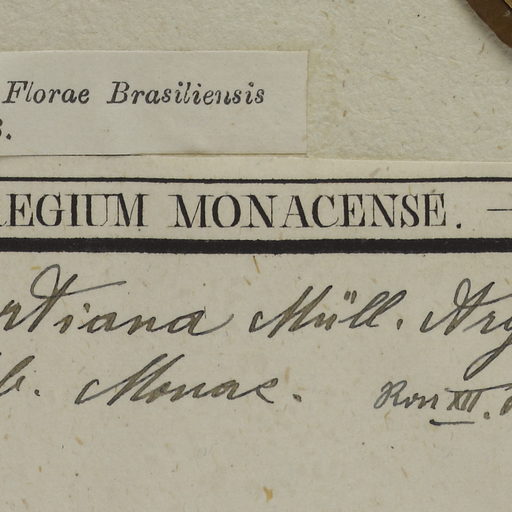 Florae Brasiliensis
REGIUM MONACENSE. —
rtiana Müll. Arg
b. Monac.